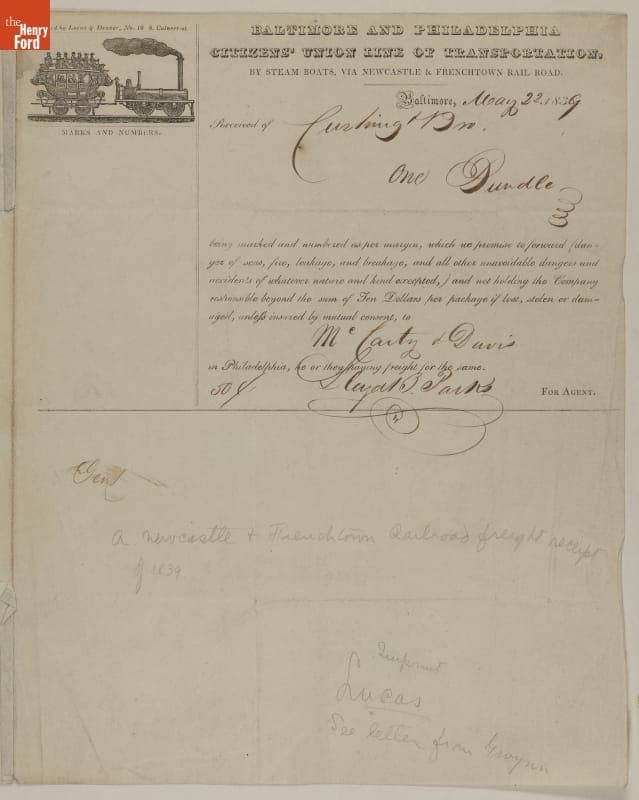 the
Henry
Ford
by Lucas & Deaver, No. 18 S. Calvert-st.
MARKS AND NUMBERS.
BALTIMORE AND PHILADELPHIA
CITIZENS' UNION LINE OF TRANSPORTATION,
BY STEAM BOATS, VIA NEWCASTLE & FRENCHTOWN RAIL ROAD.
Baltimore, May 22 1839
Received of Cushing & Bro.
One Bundle
being marked and numbered as per margin, which we promise to forward (dan-
ger of seas, fire, leakage, and breakage, and all other unavoidable dangers und
accidents of whatever nature and kind excepted,) and not holding the Company
responsible beyond the sum of Ten Dollars per package if lost, stolen or dam-
aged, unless insured by mutual consent, to
McCarty & Davis
in Philadelphia, he or they paying freight for the same.
50 Lloyd B. Parks FOR AGENT.
Gent
A Newcastle & Frenchtown Railroad freight receipt
of 1839
Imprint
Lucas
See letter from Gwynn